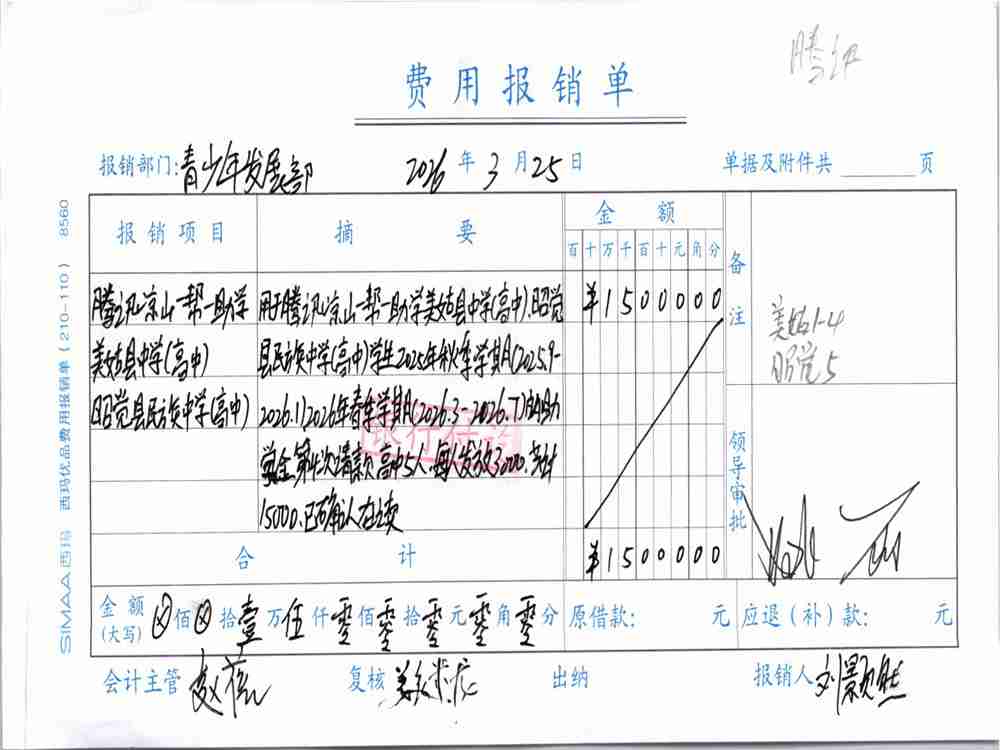 腾讯
费用报销单
报销部门:青少年发展部 2026年3月25日 单据及附件共 页
报销项目 摘要 金额 备注
百十万千百十元角分
腾讯凉山一帮一助学 用于腾讯凉山一帮一助学美姑县中学(高中).昭觉 ¥1500000
美姑县中学(高中) 县民族中学(高中)学生2025年秋季学期(2025.9-
昭觉县民族中学(高中) 2026.1)2026年春季学期(2026.3-2026.7)的助
学金第4次请款高中5人.每人发放3000.共计
15000.已确认在读
美姑1-4
昭觉5
银行
领导审批
合计 ¥1500000
金额(大写) ⊗佰⊗拾壹万伍仟零佰零拾零元零角零分 原借款: 元 应退(补)款: 元
会计主管 赵薇 复核 出纳 报销人 刘景然
SIMAA西玛 西玛优品费用报销单(210-110) 8560